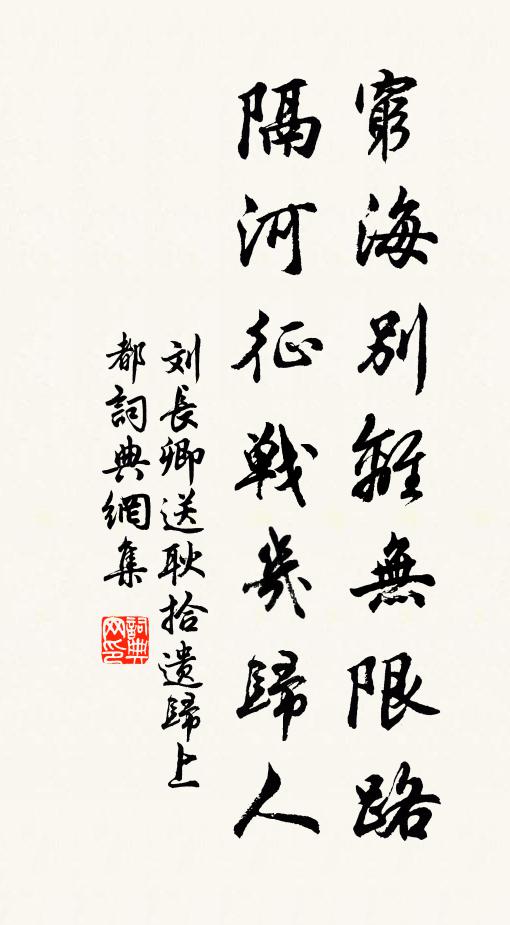 窮海別離無限路
隔河征戰幾歸人
刘長卿送耿拾遗歸上
都詞典網集
詞典
网印